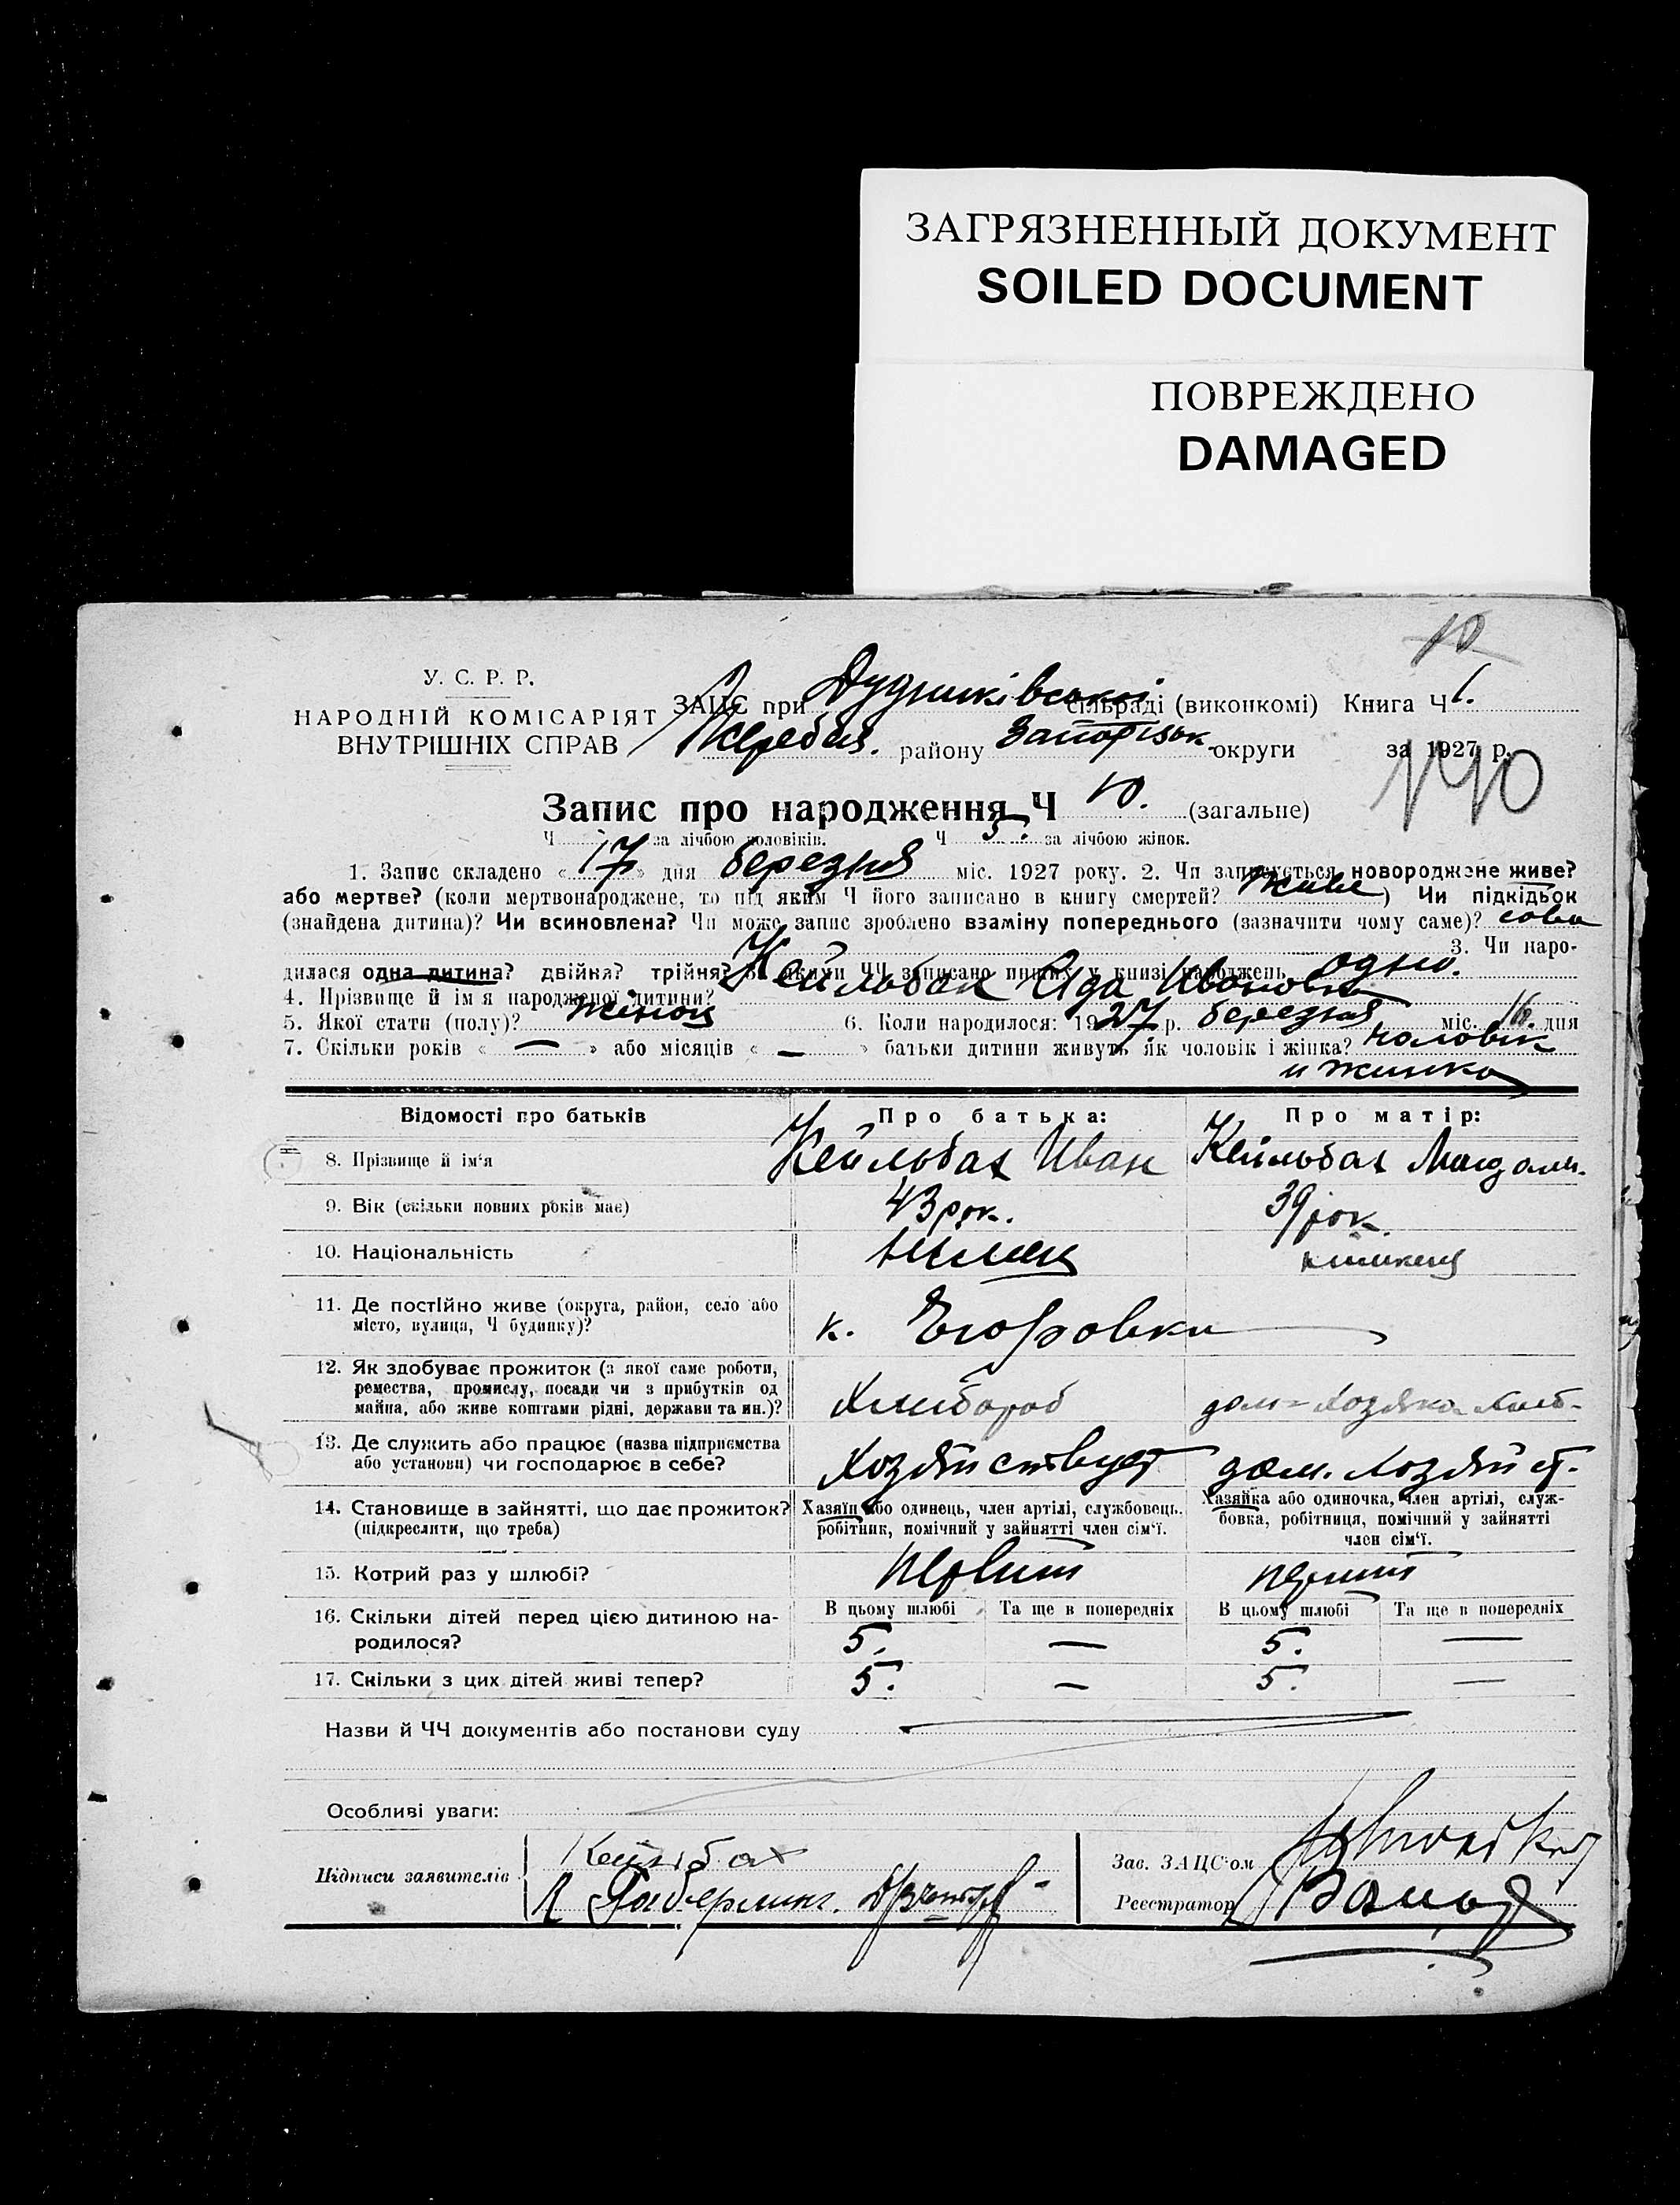 ЗАГРЯЗНЕННЫЙ ДОКУМЕНТ
SOILED DOCUMENT
ПОВРЕЖДЕНО
DAMAGED
10
У. С. Р. Р.
НАРОДНІЙ КОМІСАРІЯТ
ВНУТРІШНІХ СПРАВ
ЗАЦС при сільраді (виконкомі) Книга Ч 1.
району Запорізьк. округи за 1927 р.
190
Запис про народження Ч 10. (загальне)
Ч за лічбою чоловіків. Ч 5. за лічбою жінок.
1. Запис складено « 17 » дня березня міс. 1927 року. 2. Чи записується новороджене живе?
або мертве? (коли мертвонароджене, то під яким Ч його записано в книгу смертей? живе ) Чи підкідьок
(знайдена дитина)? Чи всиновлена? Чи може запис зроблено взаміну попереднього (зазначити чому саме)?
3. Чи наро-
дилася одна дитина? двійня? трійня? В якими ЧЧ записано инших у книзі народжень одно.
4. Прізвище й ім'я народженої дитини? Кейльбах Ида Ивановна
5. Якої стати (полу)? 6. Коли народилося: 1927 р. березня міс. 16. дня
7. Скільки років « — » або місяців « — » батьки дитини живуть як чоловік і жінка? чоловік
и жинка
Відомості про батьків Про батька: Про матір:
8. Прізвище й ім'я Кейльбах Иван Кейльбах Магдали.
9. Вік (скільки повних років має) 43 рок. 39 рок.
10. Національність
11. Де постійно живе (округа, район, село або
місто, вулиця, Ч будинку)? к. Егоровка
12. Як здобуває прожиток (з якої саме роботи,
ремества, промислу, посади чи з прибутків од
майна, або живе коштами рідні, держави та ин.)? Хлибороб дом. хозяйка
13. Де служить або працює (назва підприємства
або установи) чи господарює в себе? Хозяйствует дом. хозяйст.
14. Становище в зайнятті, що дає прожиток?
(підкреслити, що треба)
Хазяїн або одинець, член артілі, службовець.
робітник, помічний у зайнятті член сім'ї.
Хазяйка або одиночка, член артілі, служ-
бовка, робітниця, помічний у зайнятті
член сім'ї.
15. Котрий раз у шлюбі?
16. Скільки дітей перед цією дитиною на-
родилося?
В цьому шлюбі Та ще в попередніх В цьому шлюбі Та ще в попередніх
5. — 5. —
17. Скільки з цих дітей живі тепер? 5. — 5. —
Назви й ЧЧ документів або постанови суду
Особливі уваги:
Підписи заявителів Кейльбах
Зав. ЗАЦС'ом
Реєстратор